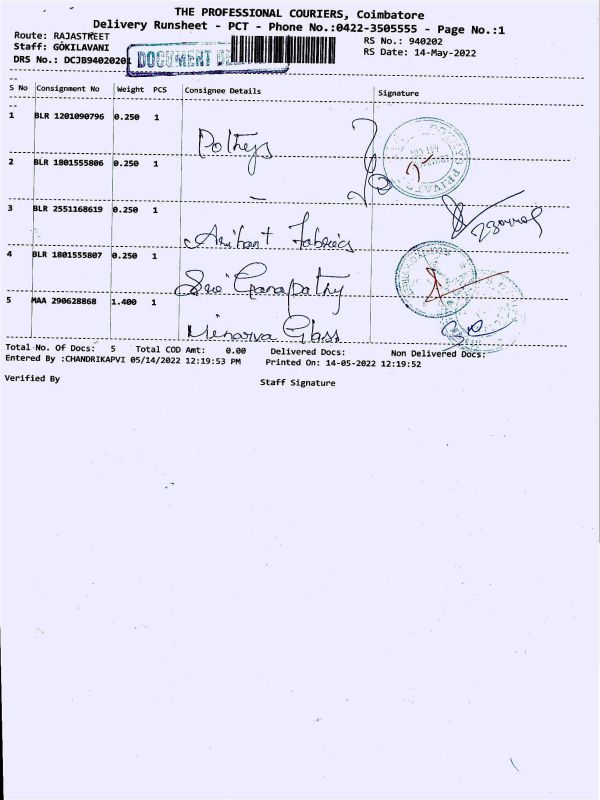 THE PROFESSIONAL COURIERS, Coimbatore
Delivery Runsheet - PCT - Phone No.:0422-3505555 - Page No.:1
Route: RAJASTREET
RS No.: 940202
Staff: GOKILAVANI
RS Date: 14-May-2022
DRS No.: DCJB94020201
DOCUMENT
S No Consignment No Weight PCS Consignee Details Signature
1 BLR 1201090796 0.250 1
Pothys
2 BLR 1801555806 0.250 1
3 BLR 2551168619 0.250 1
Arihant Fabrics
4 BLR 1801555807 0.250 1
Sri Ganapathy
5 MAA 290628868 1.400 1
Minarva Glass
Total No. Of Docs: 5 Total COD Amt: 0.00 Delivered Docs: Non Delivered Docs:
Entered By :CHANDRIKAPVI 05/14/2022 12:19:53 PM Printed On: 14-05-2022 12:19:52
Verified By Staff Signature